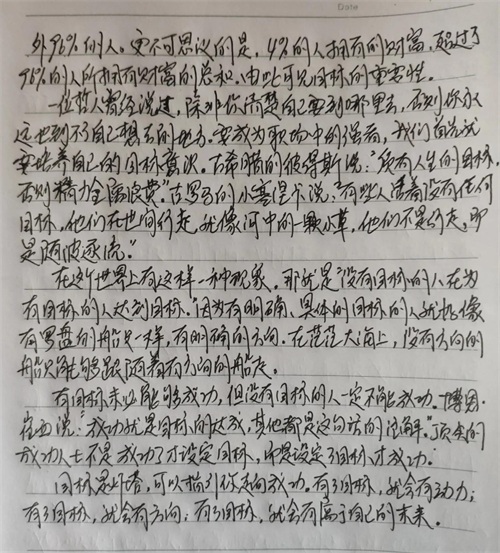 Date
外96%的人。更不可思议的是，4%的人拥有的财富，超过了
96%的人所拥有财富的总和。由此可见目标的重要性。
一位哲人曾经说过，除非你清楚自己要到哪里去，否则你永
远也到不了自己想去的地方。要成为职场中的强者，我们首先就
要培养自己的目标意识。古希腊的彼得斯说："须有人生的目标，
否则精力全属浪费。"古罗马的小塞涅卡说："有些人活着没有任何
目标，他们在世间行走，就像河中的一颗小草，他们不是行走，而
是随波逐流。"
在这个世界上有这样一种现象，那就是"没有目标的人在为
有目标的人达到目标。"因为有明确、具体的目标的人就好像
有罗盘的船只一样，有明确的方向。在茫茫大海上，没有方向的
船只能够跟随着有方向的船走。
有目标未必能够成功，但没有目标的人一定不能成功。博恩·
崔西说："成功就是目标的达成，其他都是这句话的注解。"顶尖的
成功人士不是成功了才设定目标，而是设定了目标才成功。
目标是灯塔，可以指引你走向成功。有了目标，就会有动力；
有了目标，就会有方向；有了目标，就会有属于自己的未来。